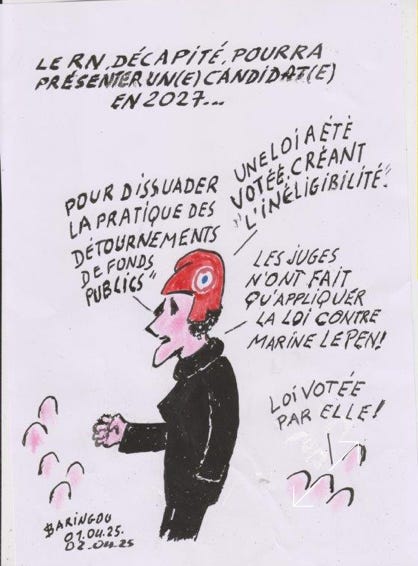 LE RN, DÉCAPITÉ, POURRA
PRÉSENTER UN(E) CANDIDAT(E)
EN 2027...
UNE LOI A ÉTÉ
VOTÉE, CRÉANT
"L'INÉLIGIBILITÉ"
POUR DISSUADER
LA PRATIQUE DES
DÉTOURNEMENTS
DE FONDS
PUBLICS"
LES JUGES
N'ONT FAIT
QU'APPLIQUER
LA LOI CONTRE
MARINE LE PEN!
LOI VOTÉE
PAR ELLE!
BARINGOU
01.04.25.
02.04.25